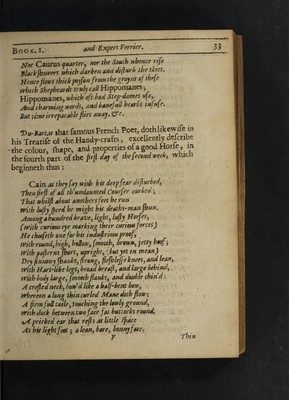 BOOK. I. and Expert Ferrier. 33
Nor Caurus quarter, nor the South whence rise
Black showers which darken and disturb the skies.
Hence flows thick poyson from the groyns of these
which Shepheards truly call Hippomanes;
Hippomanes, which oft bad Step-dames use,
And charming words, and banefull hearbs infuse.
But time irreparable flies away. &c.
Du-Bartas that famous French Poet, doth likewise in
his Treatise of the Handy-crafts, excellently describe
the colour, shape, and properties of a good Horse, in
the fourth part of the first day of the second week, which
beginneth thus:
Cain as they say with his deep fear disturbed,
Then first of all th'undaunted Courser curbed;
That whilst about anothers feet he run
With lusty speed he might his deaths-man shun.
Among a hundred brave, light, lusty Horses,
(with curious eye marking their curious forces)
He chuseth one for his industrious proof,
With round, high, hollow, smooth, brown, jetty hoof;
With pasterns short, upright, but yet in mean)
Dry sinnowy shanks, strung, fleshlesse knees, and lean,
With Hart-like legs, broad breast, and large behind,
With body large, smooth flanks, and double chin'd:
A crested neck, bow'd like a half-bent bow,
Whereon a long thin curled Mane doth flow;
A firm full taile, touching the lowly ground,
With dock between two fair fat buttocks round.
A pricked ear that rests as little space
As his light foot; a lean, bare, bonny face,
F Thin